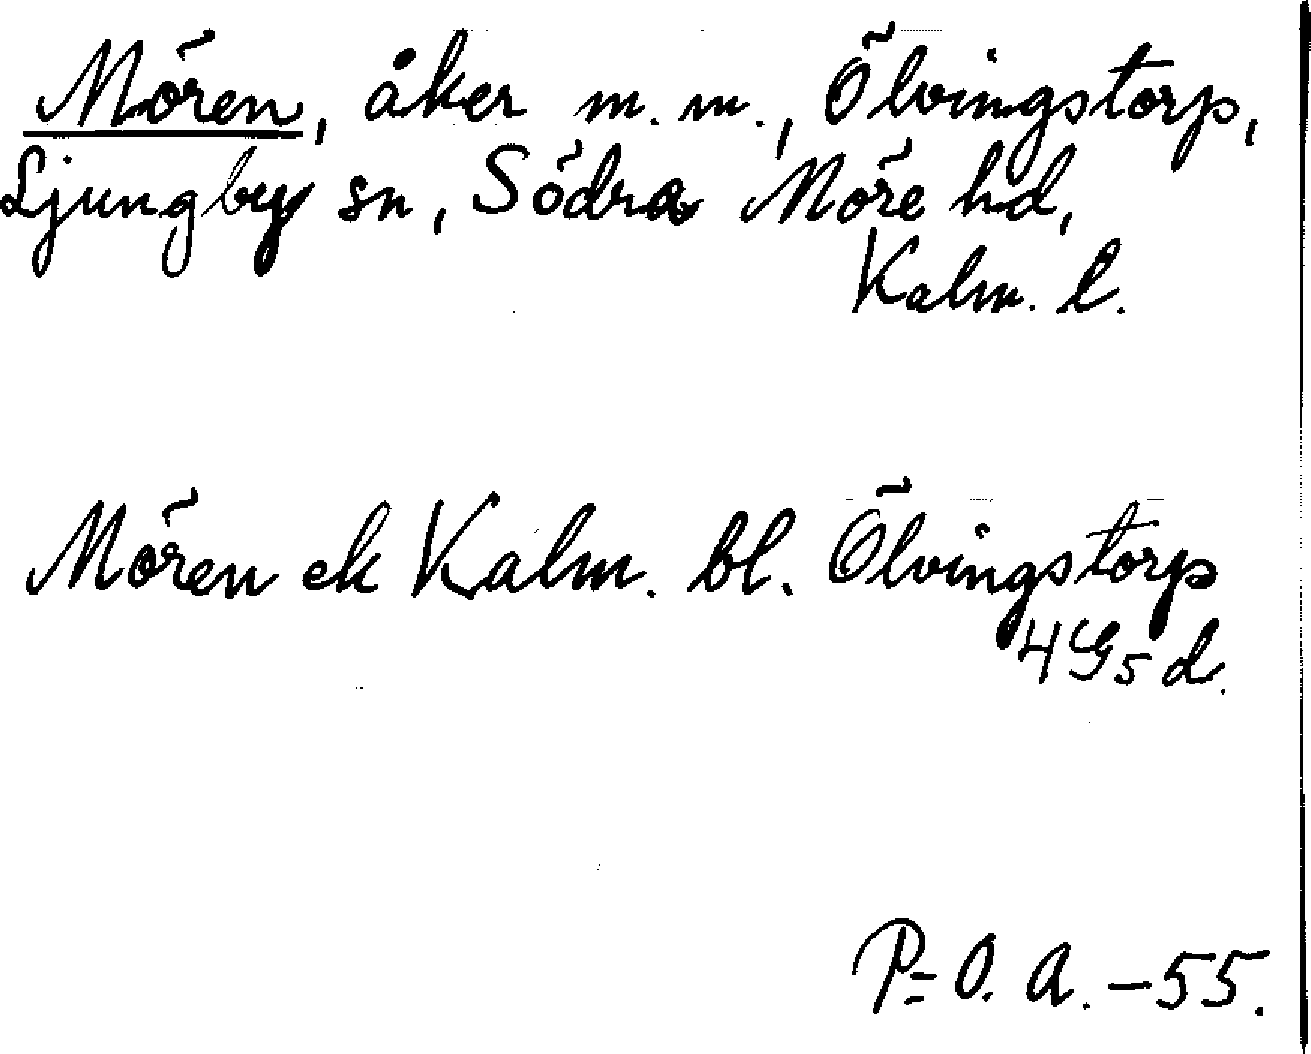 Mören, åker m.m., Ölvingstorp,
Ljungby sn, Södra Möre hd,
Kalm. l.
Mören ek Kalm. bl. Ölvingstorp
4G5d.
P-O. A. -55.